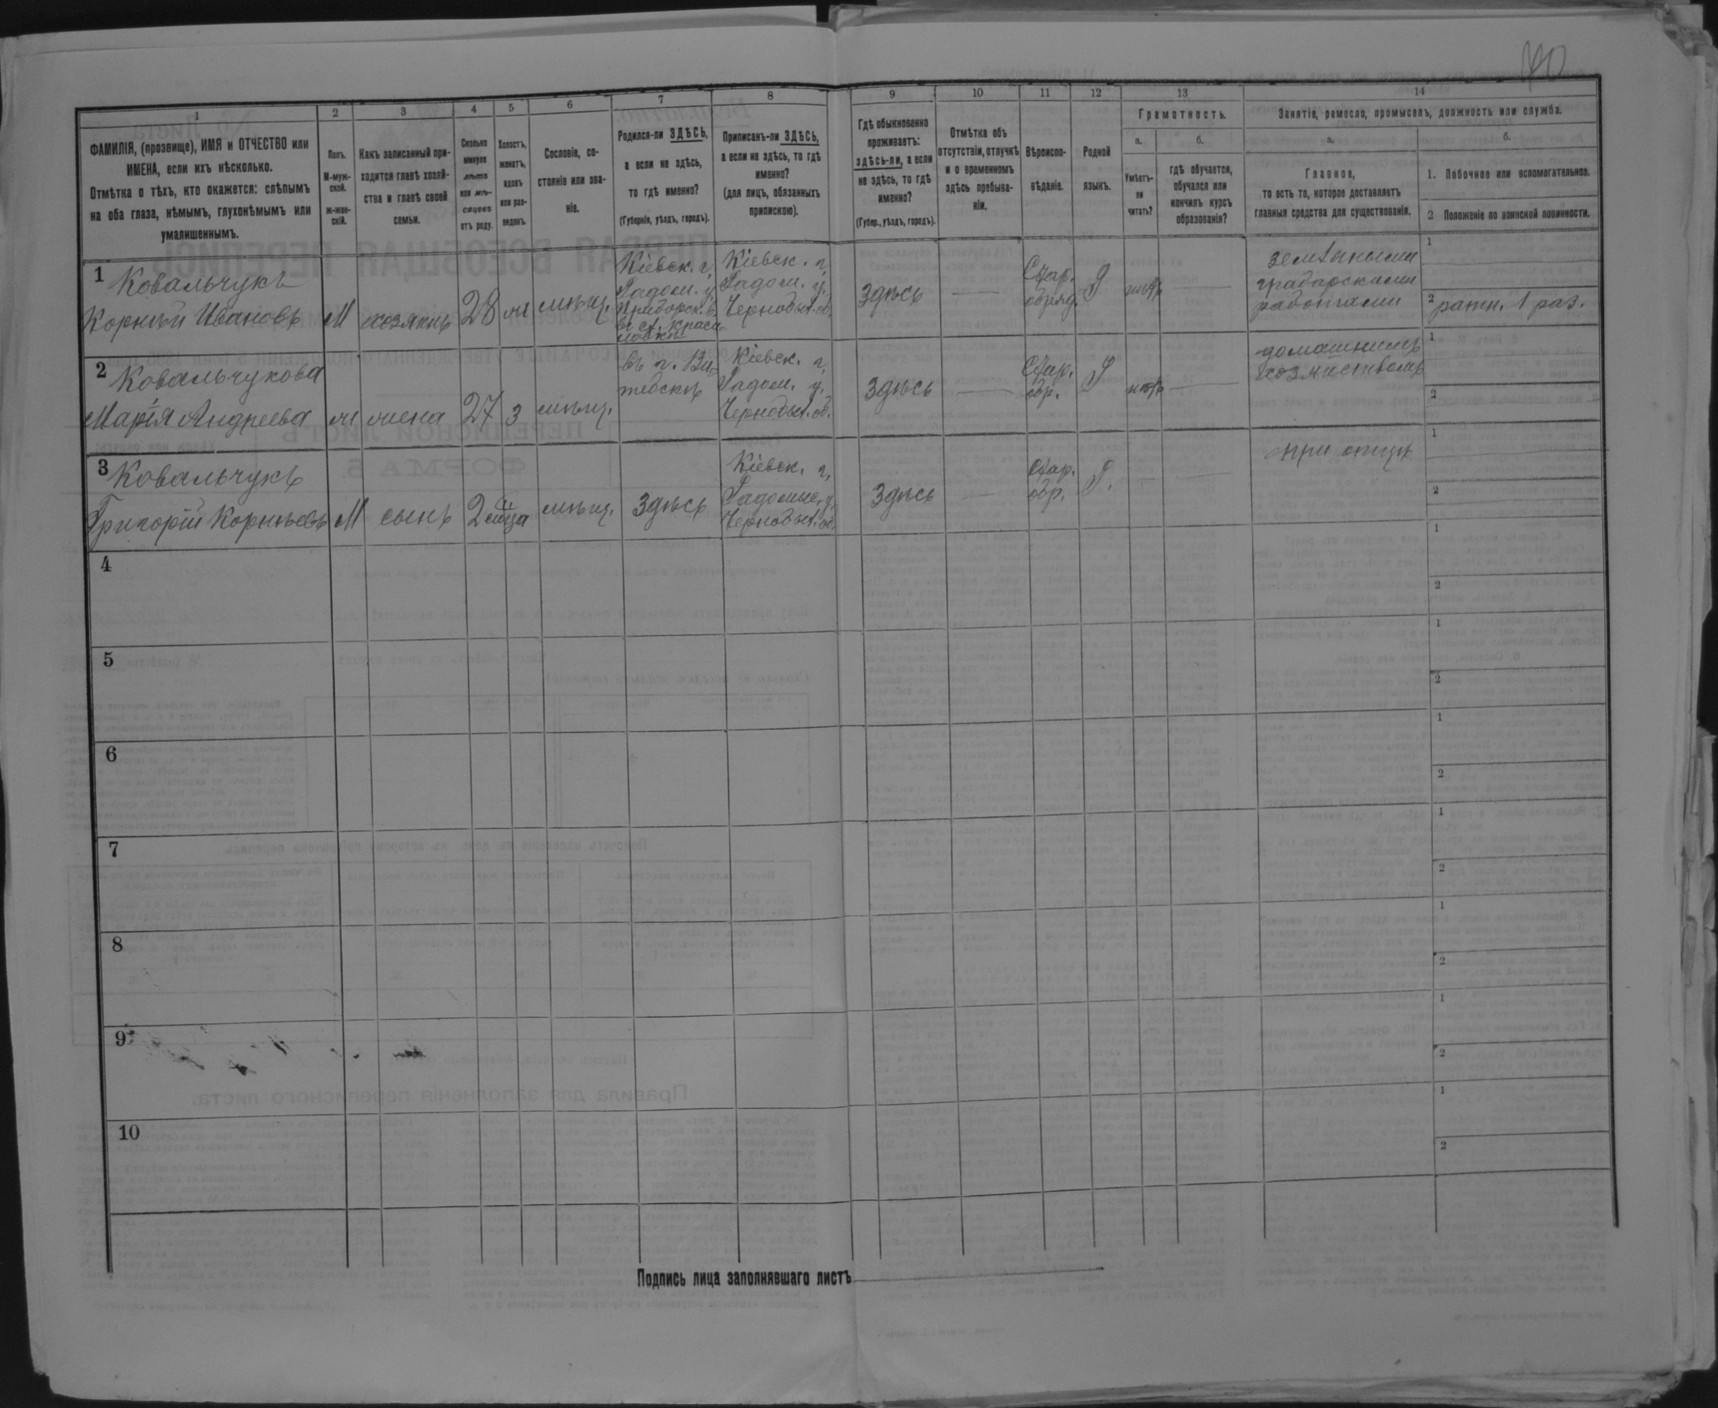 140
1
2
3
4
5
6
7
8
9
10
11
12
13
14
ФАМИЛІЯ, (прозвище), ИМЯ и ОТЧЕСТВО или
ИМЕНА, если ихъ нѣсколько.
Отмѣтка о тѣхъ, кто окажется: слѣпымъ
на оба глаза, нѣмымъ, глухонѣмымъ или
умалишеннымъ.
Полъ.
М-муж-
ской.
ж-жен-
скій.
Какъ записанный при-
ходится главѣ хозяй-
ства и главѣ своей
семьи.
Сколько
минуло
лѣтъ
или мѣ-
сяцевъ
отъ роду.
Холостъ,
женатъ,
вдовъ
или раз-
веденъ.
Сословіе, со-
стояніе или зва-
ніе.
Родился-ли ЗДѢСЬ,
а если не здѣсь,
то гдѣ именно?
(Губернія, уѣздъ, городъ).
Приписанъ-ли ЗДѢСЬ,
а если не здѣсь, то гдѣ
именно?
(для лицъ, обязанныхъ
припискою).
Гдѣ обыкновенно
проживаетъ:
здѣсь-ли, а если
не здѣсь, то гдѣ
именно?
(Губер., уѣздъ, городъ).
Отмѣтка объ
отсутствіи, отлучкѣ
и о временномъ
здѣсь пребыва-
ніи.
Вѣроиспо-
вѣданіе.
Родной
языкъ.
Грамотность.
а.
Умѣетъ-
ли
читать?
б.
гдѣ обучается,
обучался или
кончилъ курсъ
образованія?
Занятіе, ремесло, промыселъ, должность или служба.
а.
Главное,
то есть то, которое доставляетъ
главныя средства для существованія.
б.
1. Побочное или вспомогательное.
2 Положеніе по воинской повинности.
1
Ковальчукъ
Корнѣй Ивановъ
М
хозяинъ
28
ж
мѣщ.
Кіевск. г.
Радом. у.
Кіевск. г.
Радом. у.
Чернобыл. об.
здѣсь
Стар.
обряд.
Р
нѣтъ
земляными
грабарскими
работами
1
2
ратн. 1 раз.
2
Ковальчукова
Марія Андреева
ж
жена
27
з
мѣщ.
въ г. Ви-
тебскѣ
Кіевск. г.
Радом. у.
Чернобыл. об.
здѣсь
Стар.
обр.
Р
нѣтъ
домашнимъ
хозяйствомъ
1
2
3
Ковальчукъ
Григорій Корнѣевъ
М
сынъ
2 м-ца
мѣщ.
здѣсь
Кіевск. г.
Радомыс. у.
Чернобыл. об.
здѣсь
Стар.
обр.
Р.
при отцѣ
1
2
4
1
2
5
1
2
6
1
2
7
1
2
8
1
2
9
1
2
10
1
2
Подпись лица заполнявшаго листъ